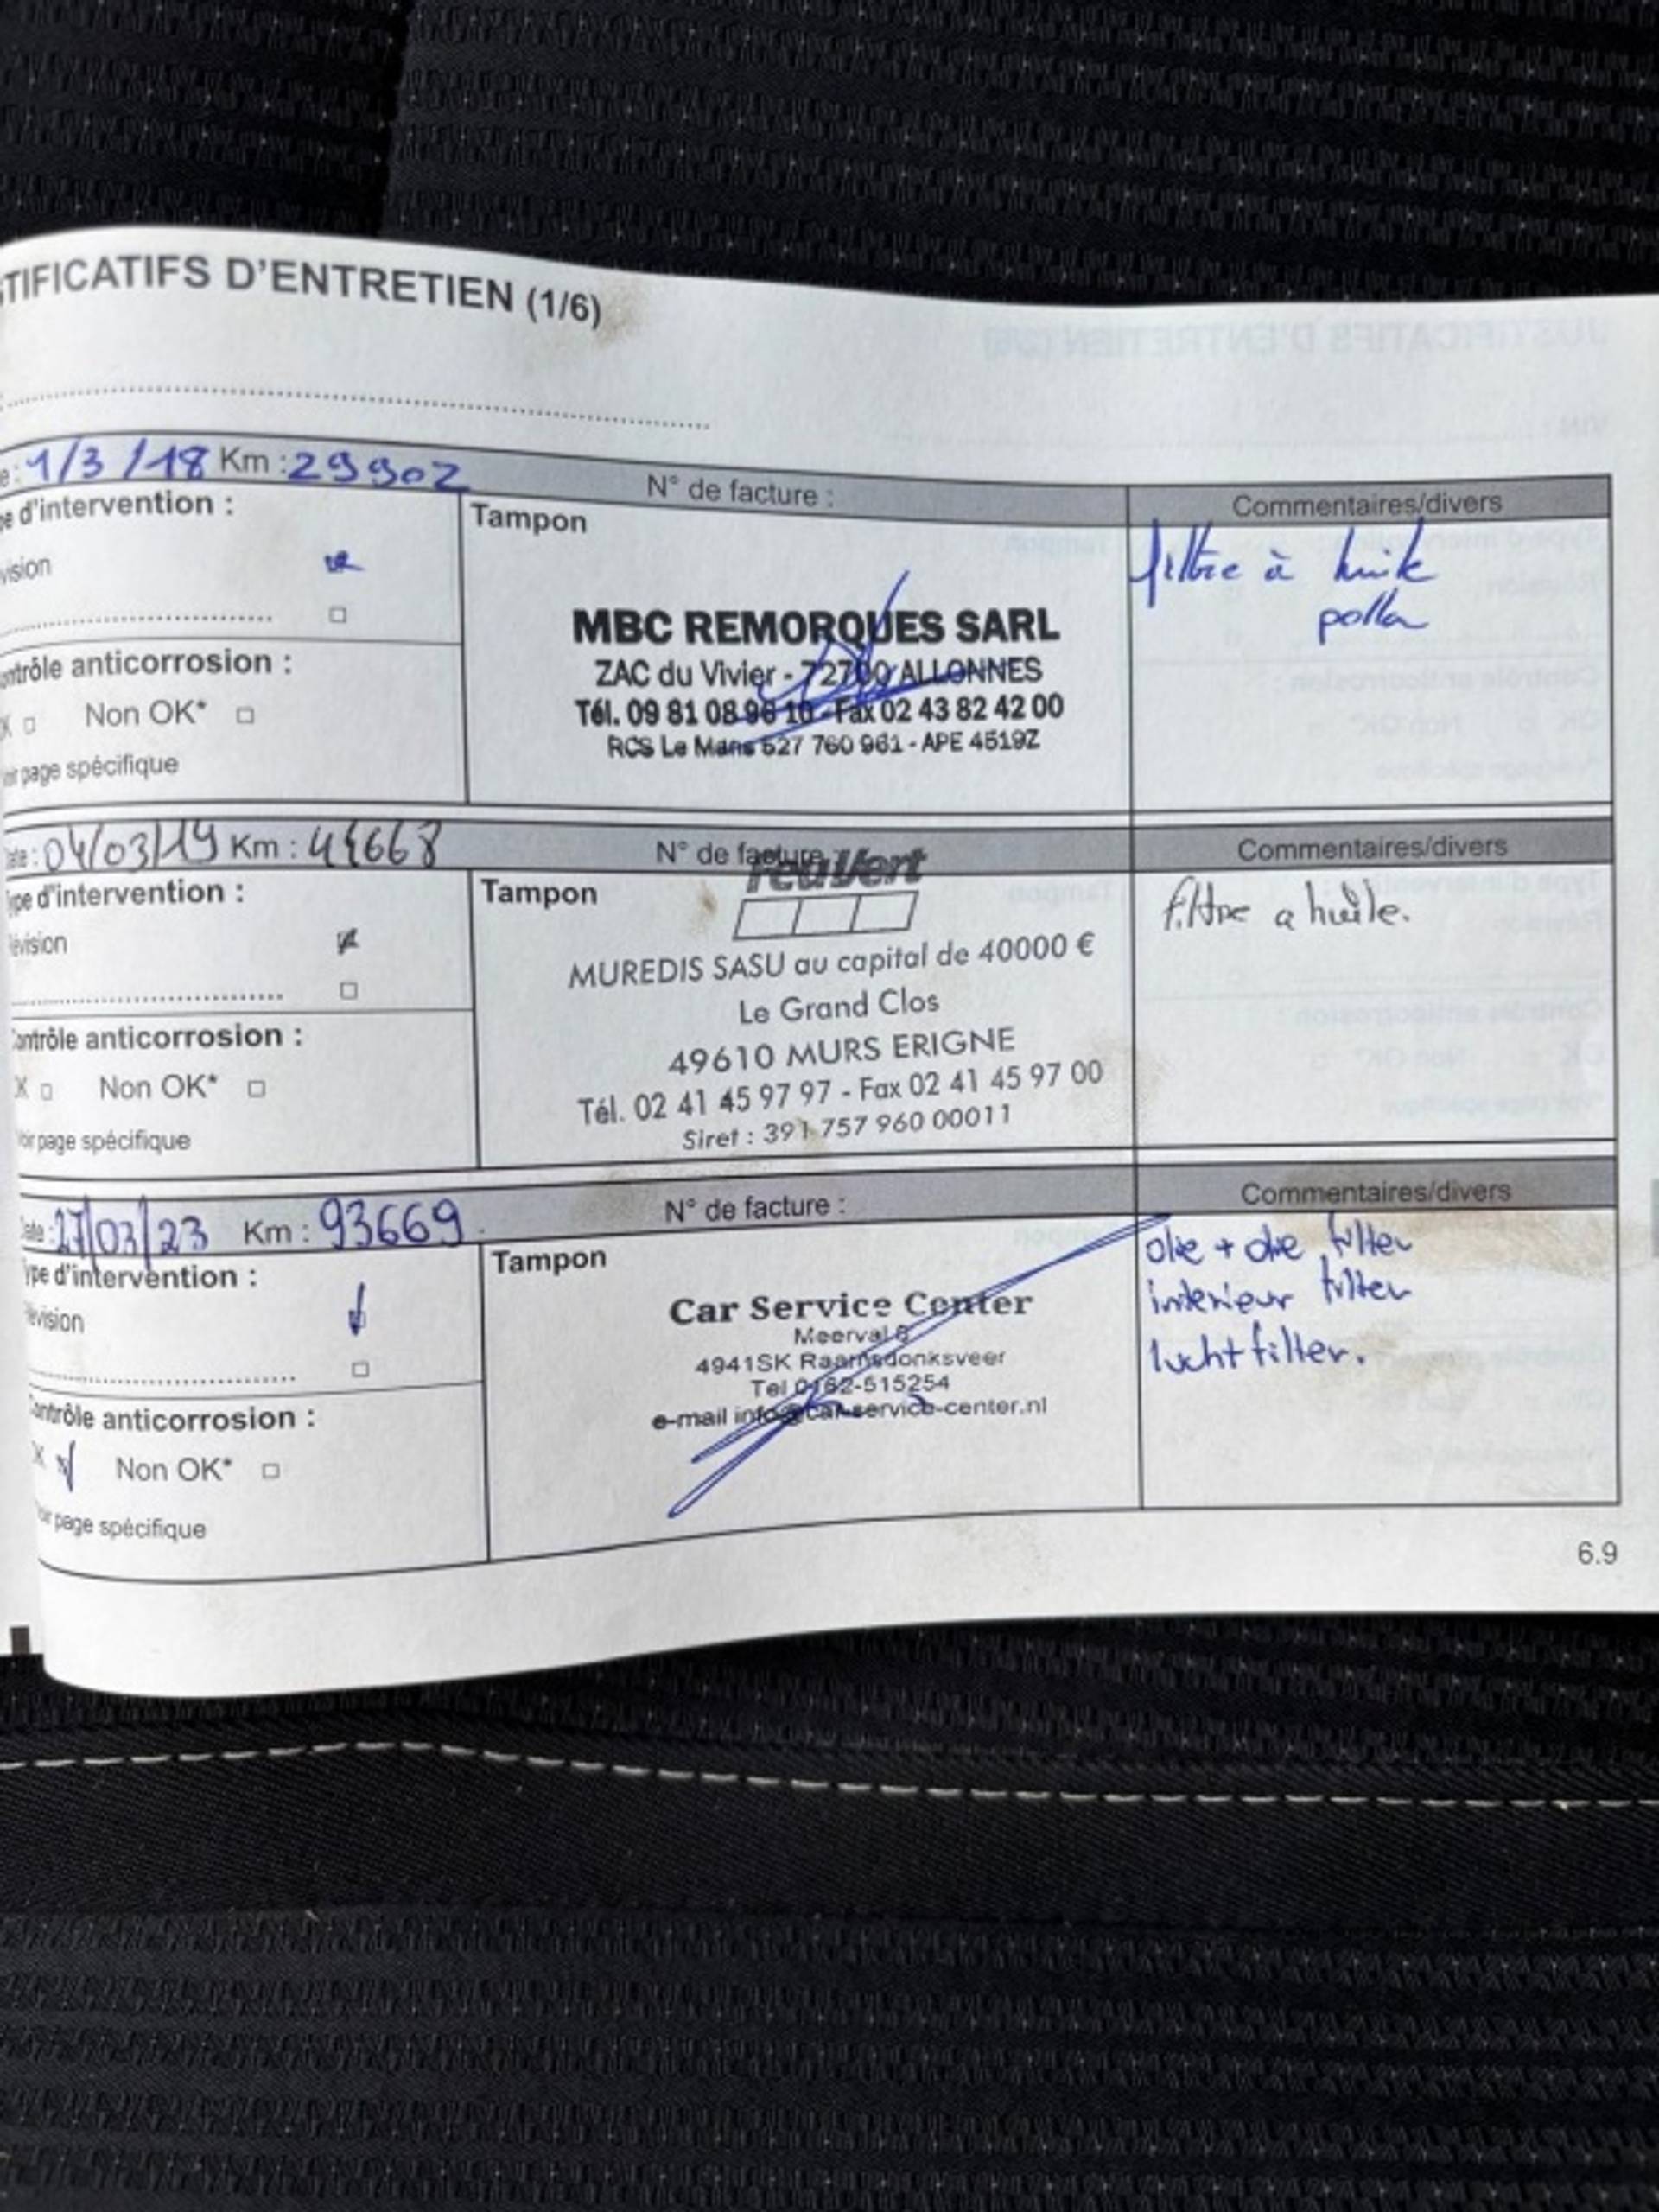 TIFICATIFS D'ENTRETIEN (1/6)
1/3/18 Km : 29902 N° de facture : Commentaires/divers
e d'intervention : Tampon filtre à huile
vision pollen
MBC REMORQUES SARL
ZAC du Vivier - 72700 ALLONNES
ontrôle anticorrosion :
Tél. 09 81 08 96 10 - Fax 02 43 82 42 00
K Non OK*
RCS Le Mans 527 760 961 - APE 4519Z
page spécifique
ate : 04/03/19 Km : 44668 N° de facture Commentaires/divers
feu Vert
ype d'intervention : Tampon filtre a huile.
évision
MUREDIS SASU au capital de 40000 €
Le Grand Clos
ontrôle anticorrosion :
49610 MURS ERIGNE
K Non OK*
Tél. 02 41 45 97 97 - Fax 02 41 45 97 00
Siret : 391 757 960 00011
oir page spécifique
ate : 27/03/23 Km : 93669. N° de facture : Commentaires/divers
ype d'intervention : Tampon olie + olie filter
evision interieur filter
luchtfilter.
Car Service Center
Meerval 8
4941SK Raamsdonksveer
Tel 0162-515254
e-mail info@car-service-center.nl
ontrôle anticorrosion :
K Non OK*
page spécifique
6.9